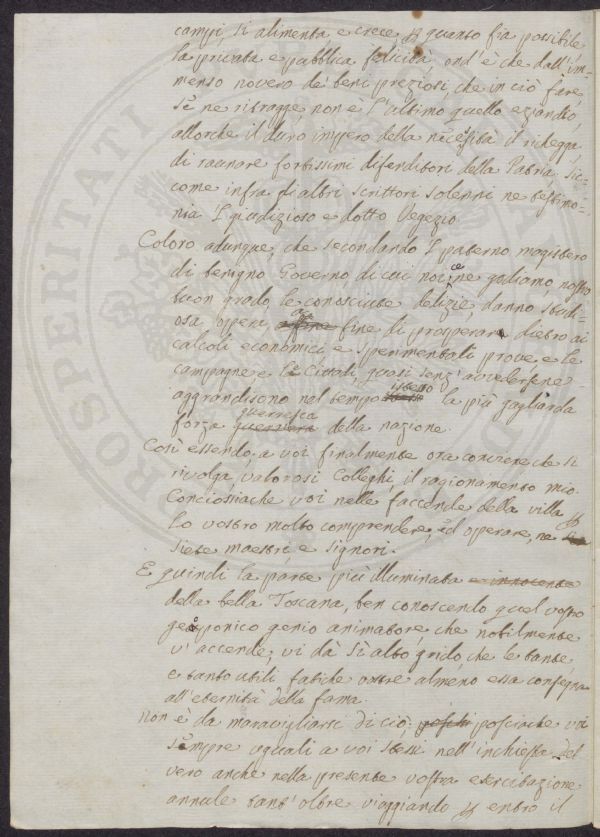 campi, si alimenta, e crece p quanto fia possibile
la privata e pubblica felicità, ond'è che dall'im-
menso novero de' beni preziosi, che in ciò fare,
se ne ritragge, non è l'ultimo quello eziandio,
allorche il duro impero della necessità il richegga,
di raunare fortissimi difenditori della Patria, sic-
come infra gl'altri scrittori solenni ne testimo-
nia 'l giudizioso e dotto Vegezio.
Coloro adunque, che secondando 'l paterno magistero
di benigno Governo, di cui noi ne godiamo, nostro
buon grado, le conosciute delizie, danno studi-
osa opera, a fine di prosperare dietro ai
calcoli economici, e sperimentali prove e le
campagne e le Cittati, quasi senz'avvedersene
aggrandiscono nel tempo istesso la più gagliarda
forza guerresca guerriera della nazione.
Così essendo, a voi finalmente ora conviene che si
rivolga, valorosi Colleghi, il ragionamento mio.
Conciossiachè voi nelle faccende della villa p
lo vostro molto comprendere, ed operare, ne
siete maestri, e signori.
E quindi la parte più illuminata e innocente
della bella Toscana, ben conoscendo quel vostro
geoponico genio animatore, che nobilmente
v'accende, vi dà sì alto grido, che le tante,
e tanto utili fatiche vostre almeno essa consegna
all'eternità della fama.
Non è da maravigliarsi di ciò, poschi posciachè voi
sempre uguali a voi stessi nell'inchiesta del
vero anche nella presente vostra esercitazione
annale tant'oltre viaggiando p entro il